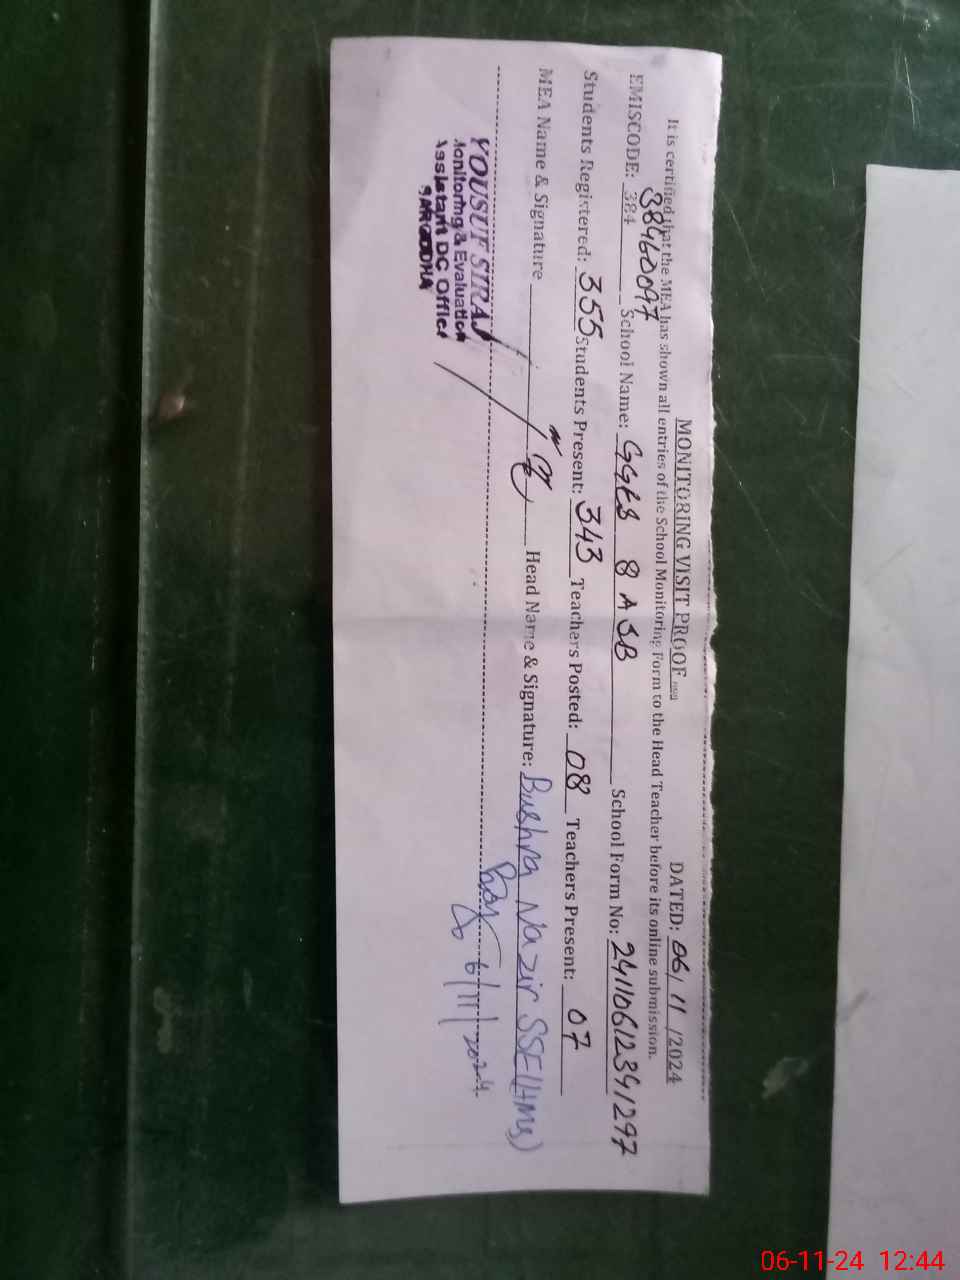 MONITORING VISIT PROOF
DATED: 06/11/2024
It is certified that the MEA has shown all entries of the School Monitoring Form to the Head Teacher before its online submission.
38460097
EMISCODE: 384 School Name: GGES 8 A SB School Form No: 241106123941297
Students Registered: 355 Students Present: 343 Teachers Posted: 08 Teachers Present: 07
MEA Name & Signature Head Name & Signature: Bushra Nazir SSE(HM)
6/11/2024
YOUSUF SIRAJ
Monitoring & Evaluation
Assistant DC Office
SARGODHA
06-11-24 12:44